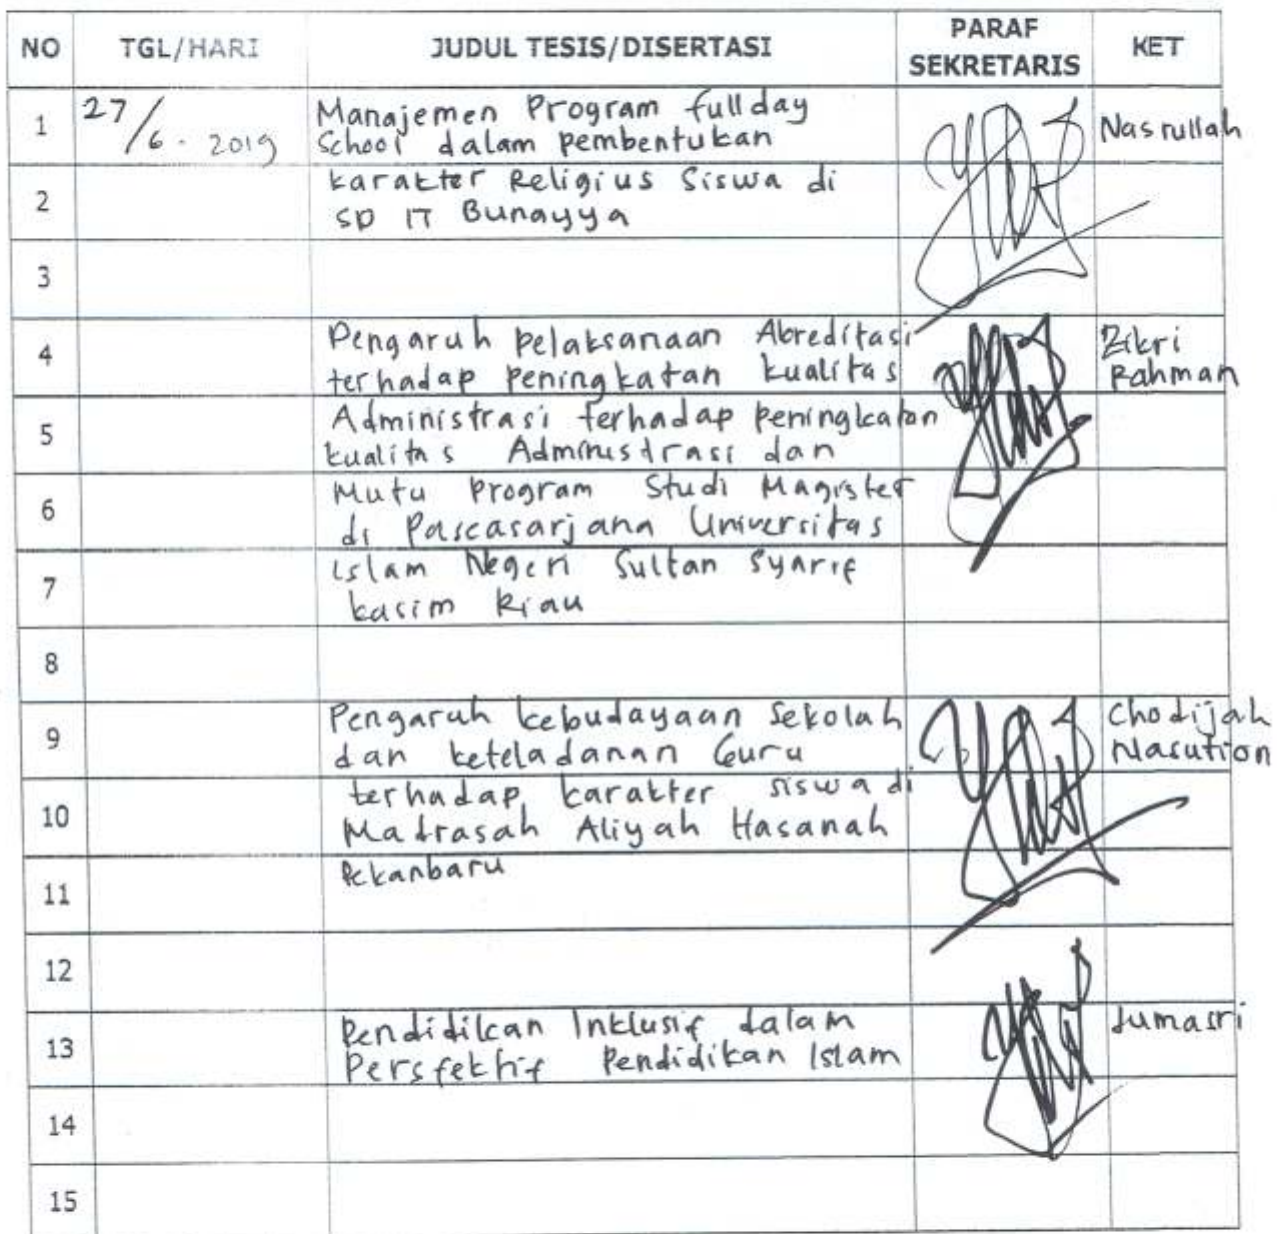 NO TGL/HARI JUDUL TESIS/DISERTASI PARAF SEKRETARIS KET
1 27/6 - 2019 Manajemen Program fullday Nasrullah
School dalam pembentukan
2 karakter Religius Siswa di
SD IT Bunayya
3
4 Pengaruh pelaksanaan Akreditasi Zikri
terhadap peningkatan kualitas Rahman
5 Administrasi terhadap peningkatan
kualitas Administrasi dan
6 Mutu Program Studi Magister
di Pascasarjana Universitas
7 Islam Negeri Sultan Syarif
kasim Riau
8
9 Pengaruh kebudayaan Sekolah Chodijah
dan keteladanan Guru Nasution
10 terhadap karakter siswa di
Madrasah Aliyah Hasanah
11 Pekanbaru
12
13 Pendidikan Inklusif dalam Jumasri
Persfektif Pendidikan Islam
14
15